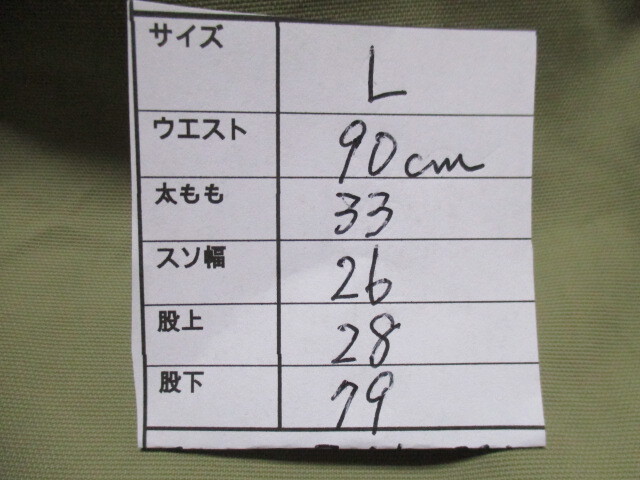 サイズ L
ウエスト 90cm
太もも 33
スソ幅 26
股上 28
股下 79